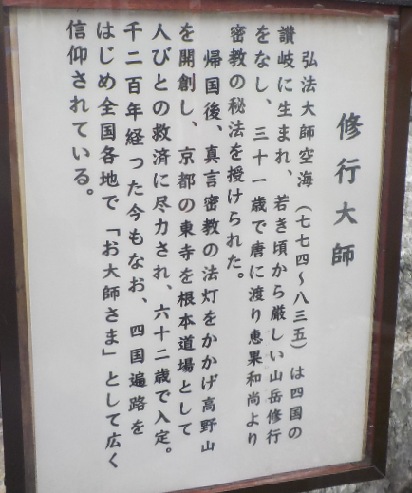 修行大師
弘法大師空海（七七四〜八三五）は四国の
讃岐に生まれ、若き頃から厳しい山岳修行
をなし、三十一歳で唐に渡り恵果和尚より
密教の秘法を授けられた。
帰国後、真言密教の法灯をかかげ高野山
を開創し、京都の東寺を根本道場として
人びとの救済に尽力され、六十二歳で入定。
千二百年経った今もなお、四国遍路を
はじめ全国各地で「お大師さま」として広く
信仰されている。